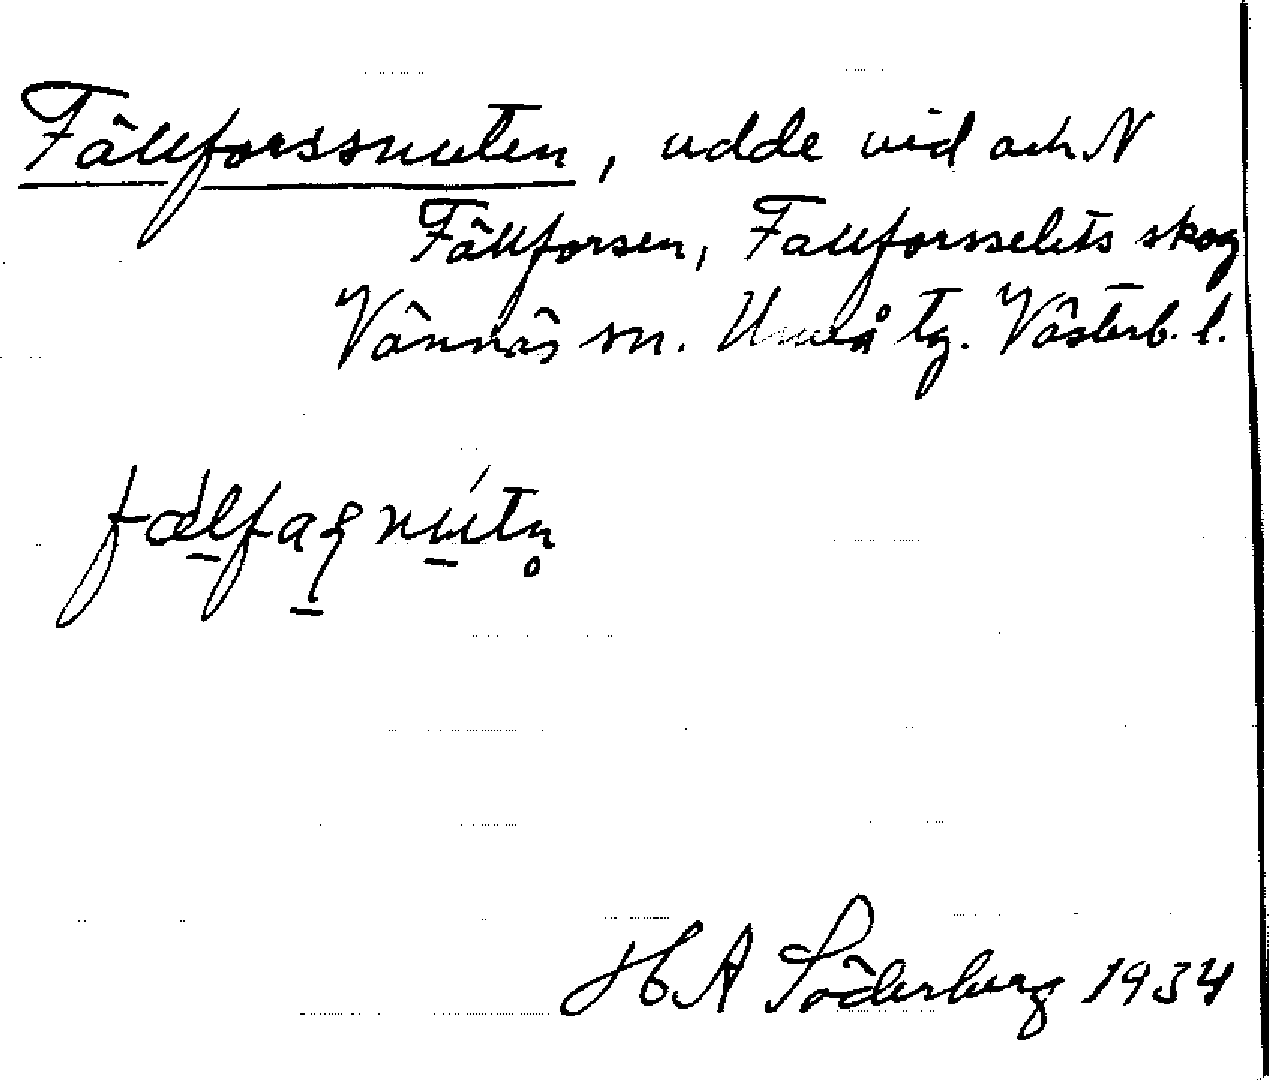 Fällforssnuten, udde vid och N
Fällforsen, Fällforsselets skog
Vännäs sn. Umeå tg. Västerb. l.
H A Söderberg 1934